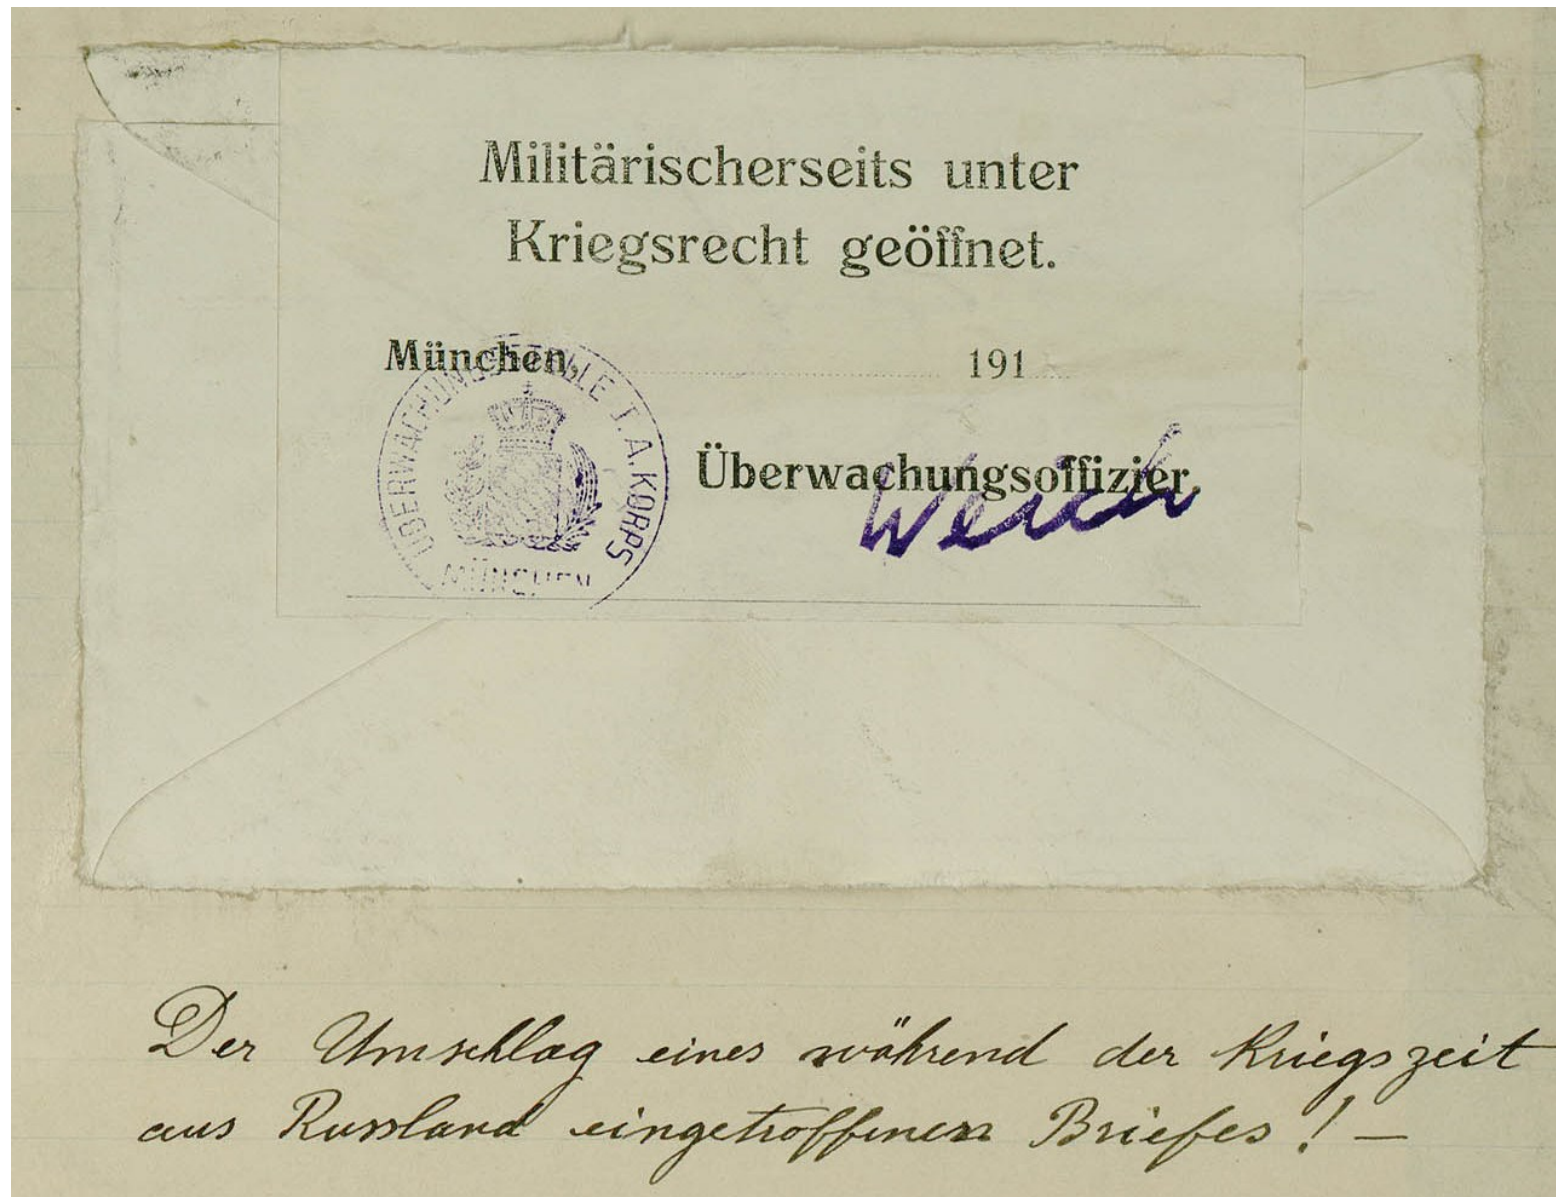 Militärischerseits unter
Kriegsrecht geöffnet.
München, 191
ÜBERWACHUNGSSTELLE I. A. KORPS
MÜNCHEN
Überwachungsoffizier.
Der Umschlag eines während der Kriegszeit
aus Russland eingetroffenen Briefes! —